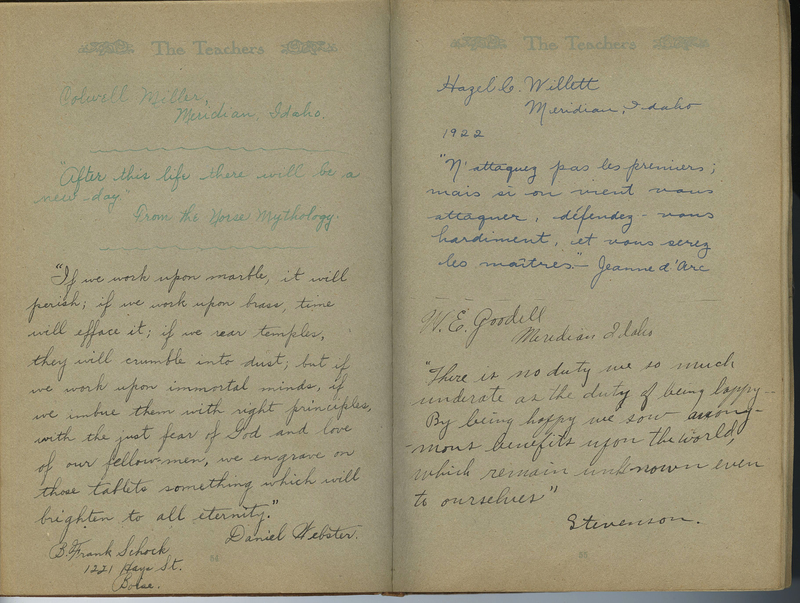 The Teachers
Colwell Miller,
Meridian, Idaho.
"After this life there will be a
new day."
From the Norse Mythology.
"If we work upon marble, it will
perish; if we work upon brass, time
will efface it; if we rear temples,
they will crumble into dust; but if
we work upon immortal minds, if
we imbue them with right principles,
with the just fear of God and love
of our fellow-men, we engrave on
those tablets something which will
brighten to all eternity."
Daniel Webster.
B. Frank Schock
1221 Hays St.
Boise.
The Teachers
Hazel C. Willett
Meridian, Idaho
1922
"N'attaquez pas les premiers;
mais si on vient vous
attaquer, défendez-vous
hardiment, et vous serez
les maîtres." - Jeanne d'Arc
W. E. Goodell
Meridian Idaho
"There is no duty we so much
underate as the duty of being happy -
By being happy we sow annony-
-mous benefits upon the world,
which remain unknown even
to ourselves"
Stevenson.